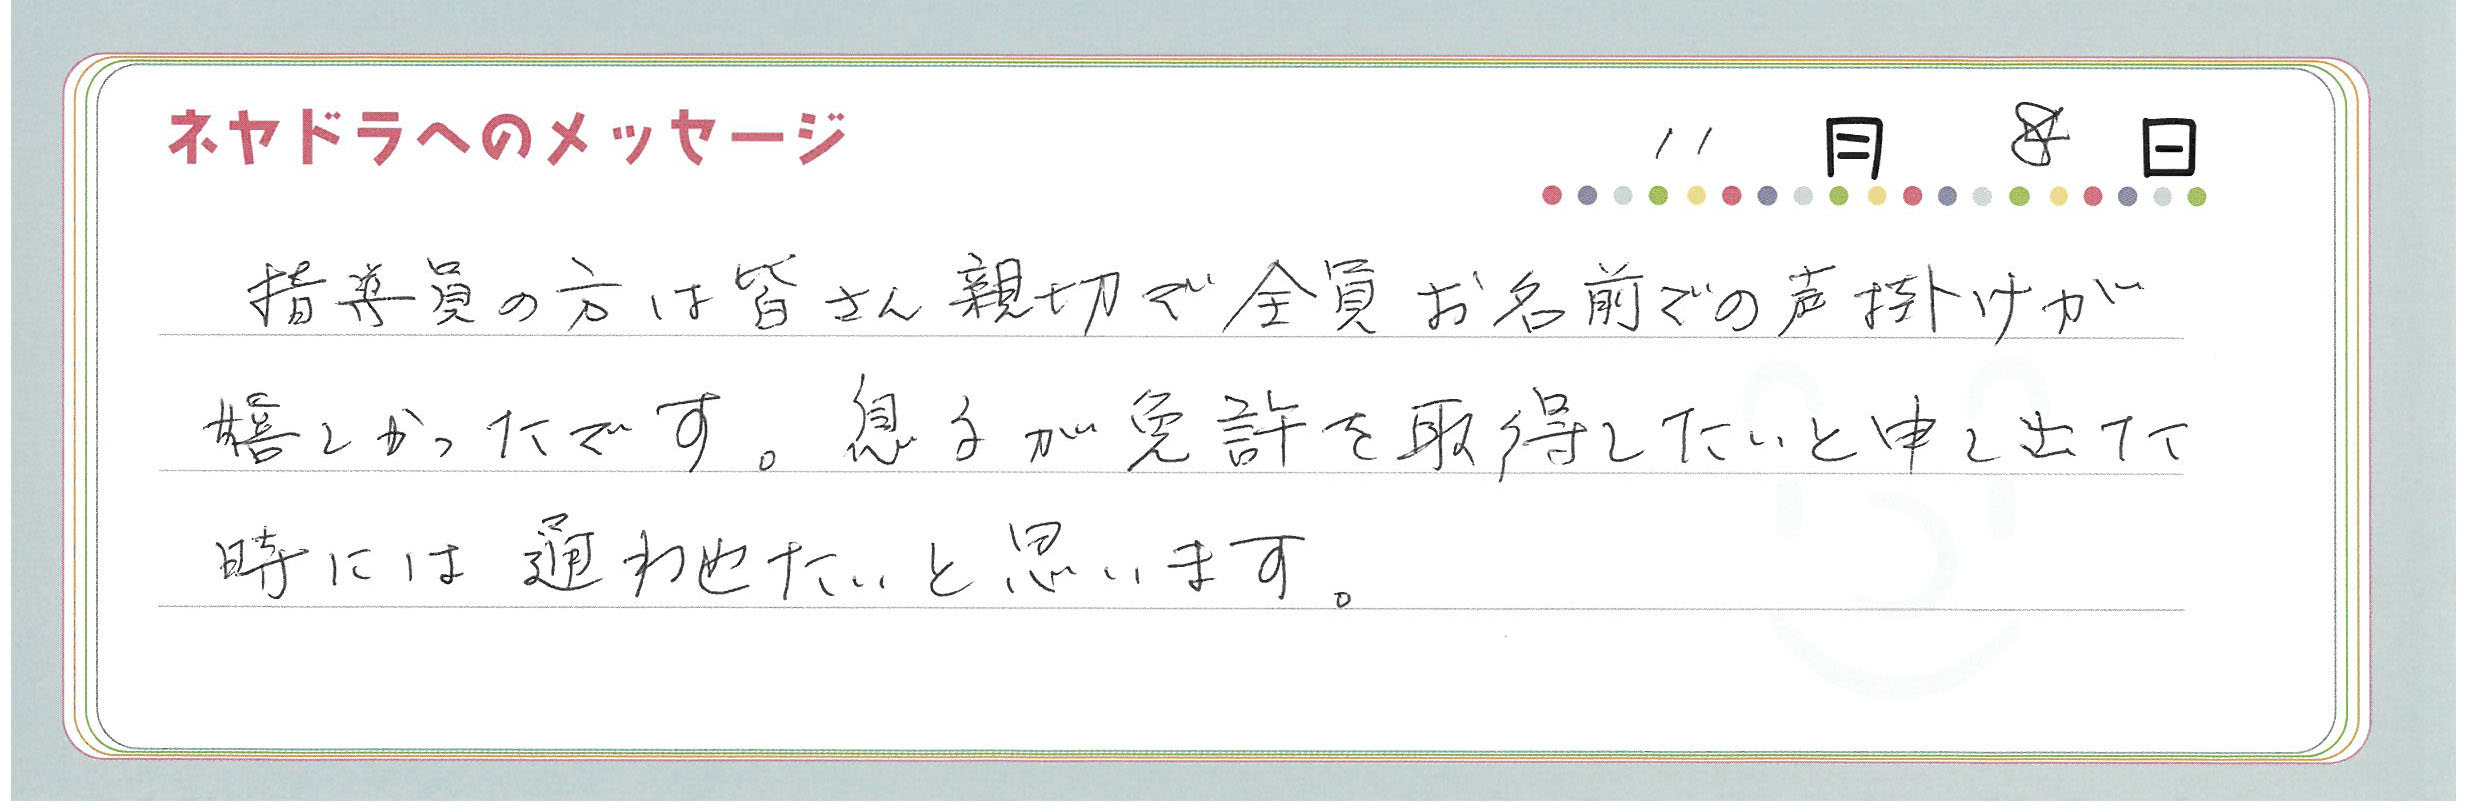 ネヤドラへのメッセージ
11月 8日
指導員の方は皆さん親切で全員お名前での声掛けが
嬉しかったです。息子が免許を取得したいと申し出た
時には通わせたいと思います。